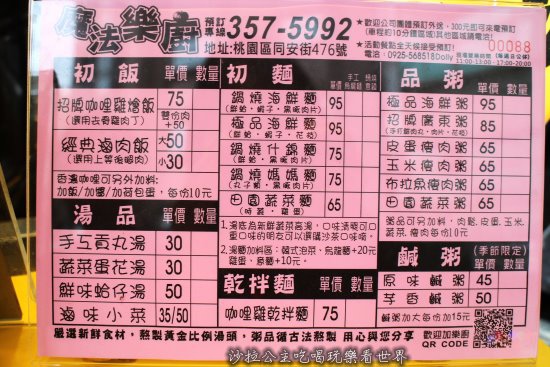 魔法樂廚
預訂專線 357-5992
地址:桃園區同安街476號
歡迎公司團體預訂外送，300元即可來電預訂
(車程約10分鐘區域)其他區域請電洽!
00088
活動餐點全天候接受預訂!
電洽：0925-568518Dolly
11:00~13:00、17:00~20:00
初飯 單價 數量
招牌咖哩雞燴飯 75
(選用去骨雞肉丁) 雙份肉+50
經典滷肉飯 大50
(選用上等後腿肉) 小30
香濃咖哩可另外加料:
加飯/加醬/加荷包蛋，每份10元
湯品 單價 數量
手工貢丸湯 30
蔬菜蛋花湯 30
鮮味蛤仔湯 50
滷味小菜 35/50
初麵 單價 數量
鍋燒海鮮麵 95
(鮮蛤、蝦子、黑輪肉片)
極品海鮮麵 95
(鮮蛤、蝦子、黑輪肉片)
鍋燒什錦麵 65
(鮮蝦、黑輪肉片)
鍋燒媽媽麵 65
(丸子類、黑輪肉片)
田園蔬菜麵 65
(時蔬、雞蛋)
1.湯底為新鮮蔬菜高湯，口味清爽可口
重口味的朋友可以選購沙茶口味唷。
2.湯麵加料區：韓式泡菜、烏龍麵+20元
雞蛋、意麵+10元
乾拌麵 單價 數量
咖哩雞乾拌麵 75
品粥 單價 數量
極品海鮮粥 95
招牌廣東粥 85
皮蛋瘦肉粥 65
玉米瘦肉粥 65
布拉魚瘦肉粥 65
田園蔬菜粥 65
粥品可另加料，肉鬆、皮蛋、玉米、
蔬菜、瘦肉每份10元
鹹粥 (季節限定)
原味鹹粥 45
芋香鹹粥 50
鹹粥加大每份加15元
嚴選新鮮食材，熬製黃金比例湯頭，粥品循古法熬製 用心與您分享
歡迎加樂廚
QR CODE
沙拉公主吃喝玩樂看世界